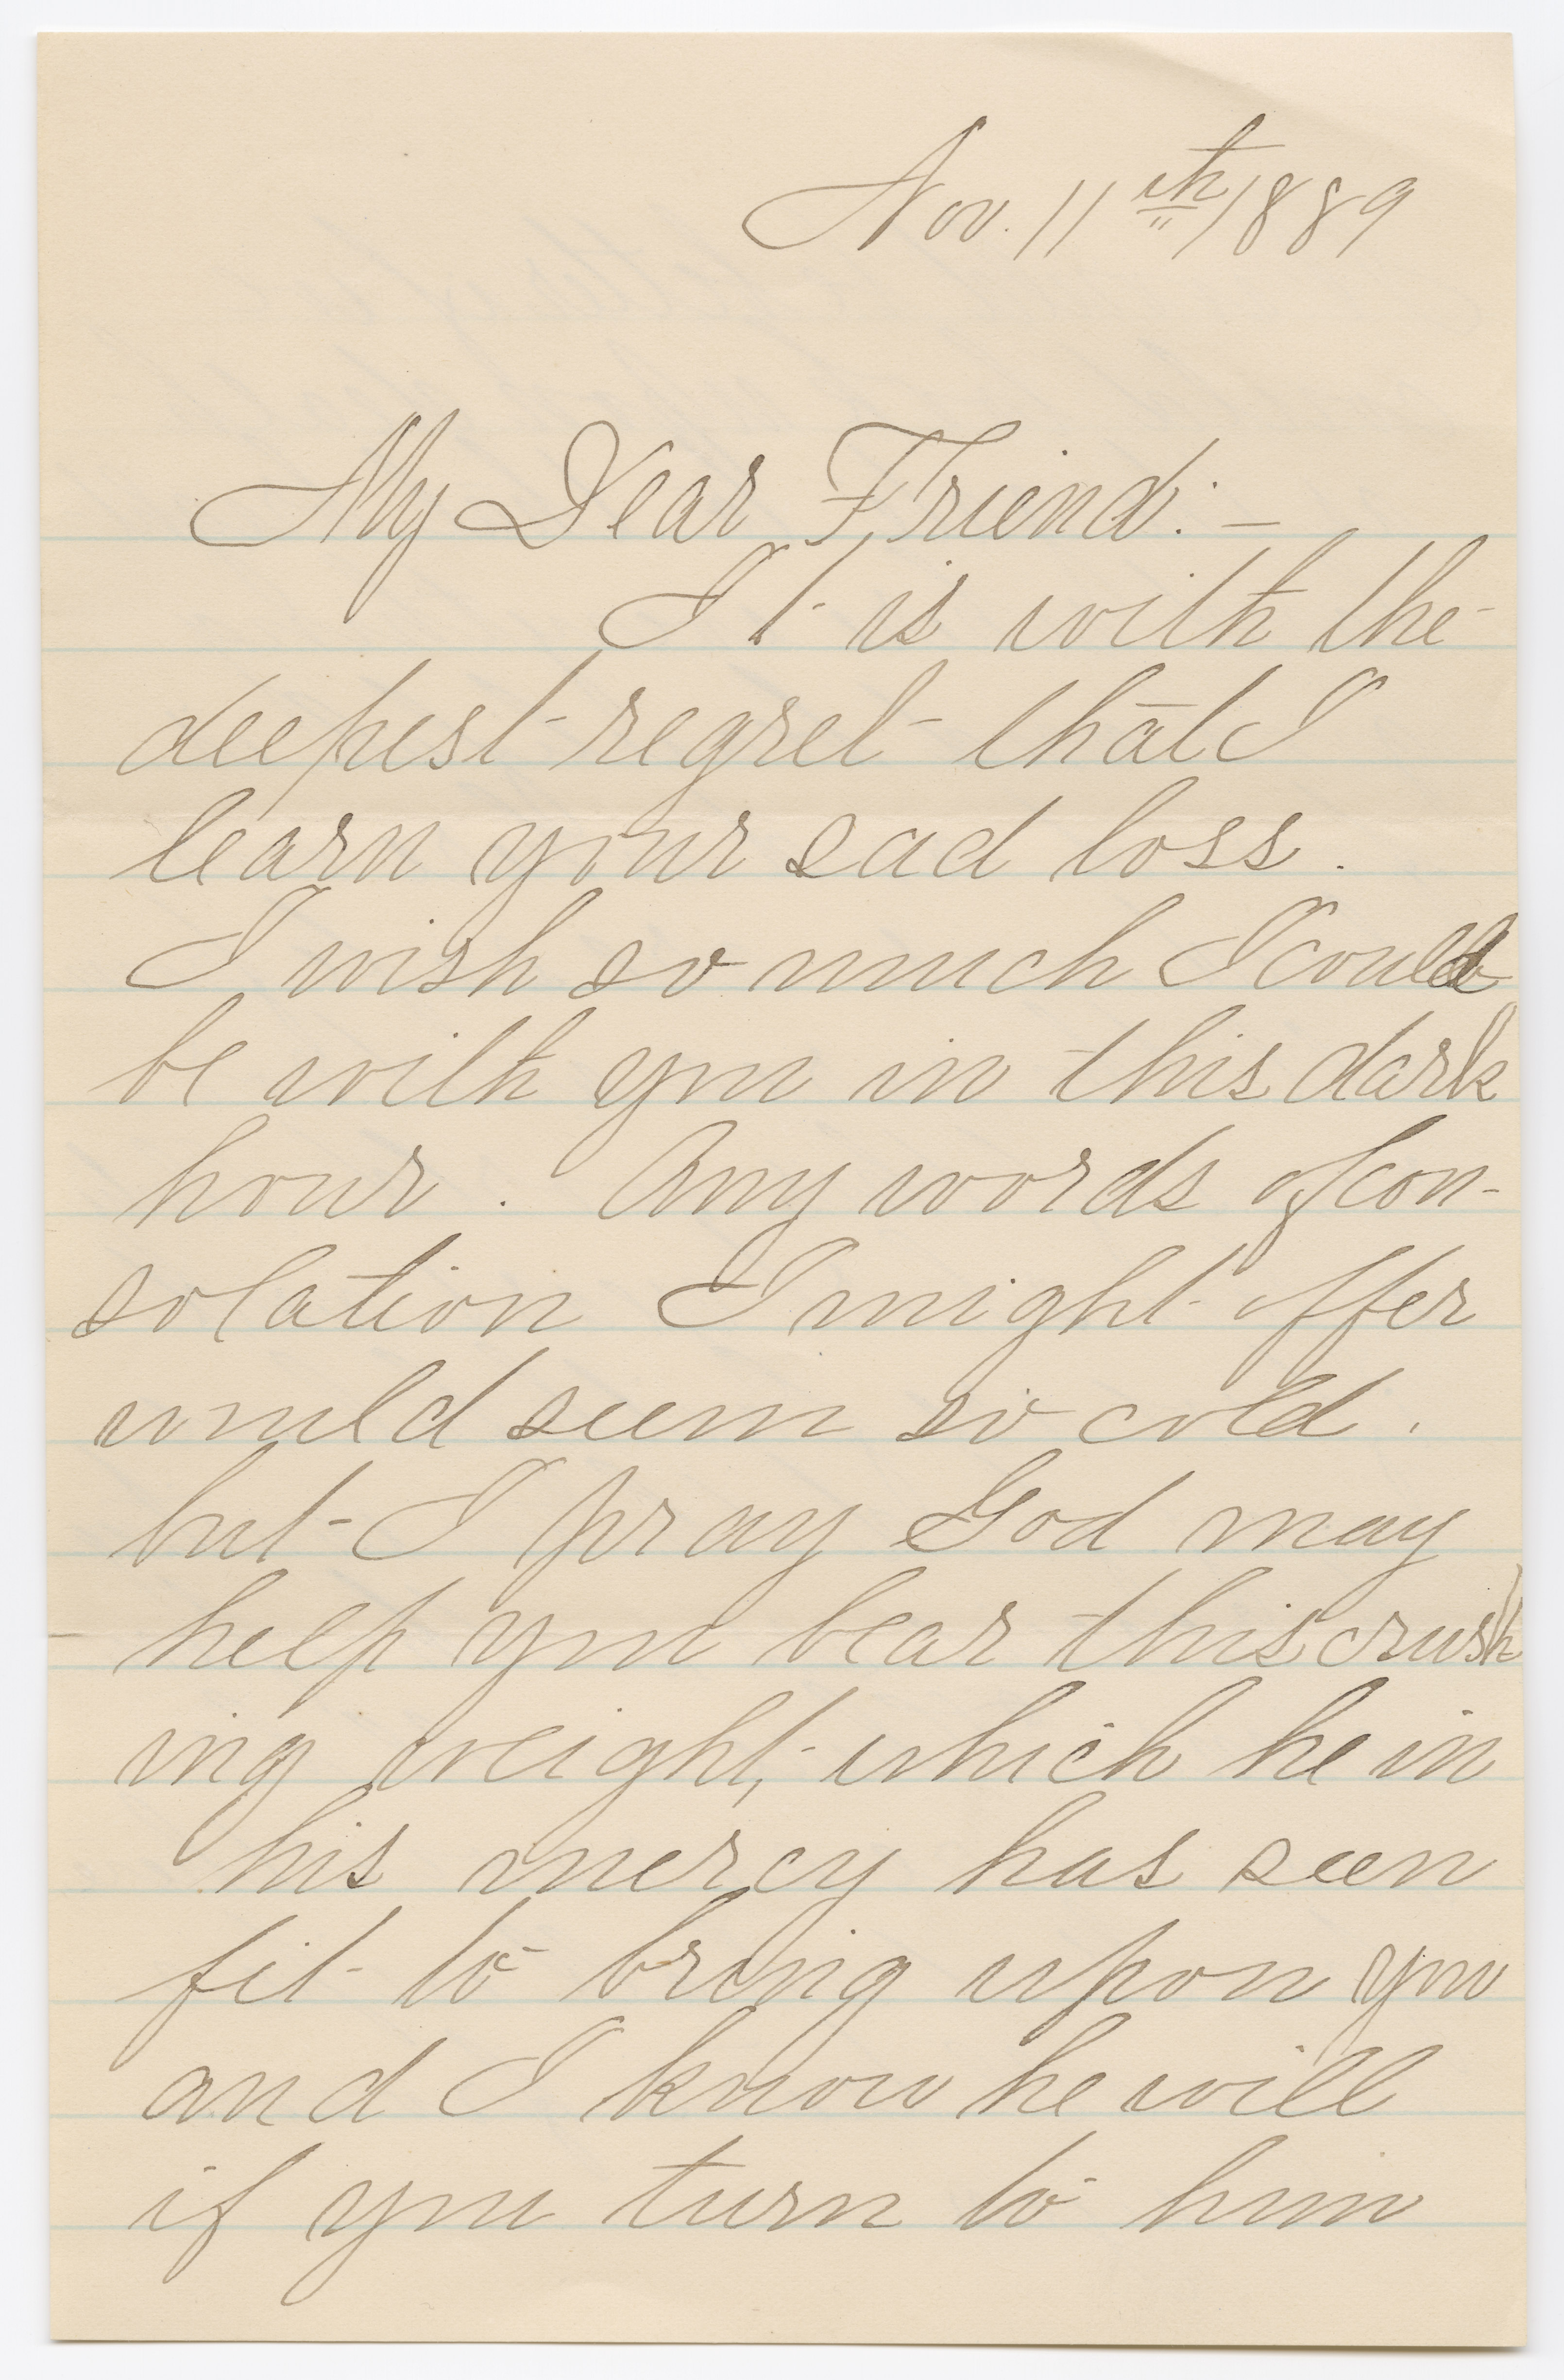 Nov. 11th 1889
My Dear Friend:—
It is with the
deepest regret that I
learn your sad loss.
I wish so much I could
be with you in this dark
hour. Any words of con-
solation I might offer
would seem so cold.
but I pray God may
help you bear this crush
ing weight, which he in
his mercy has seen
fit to bring upon you
and I know he will
if you turn to him